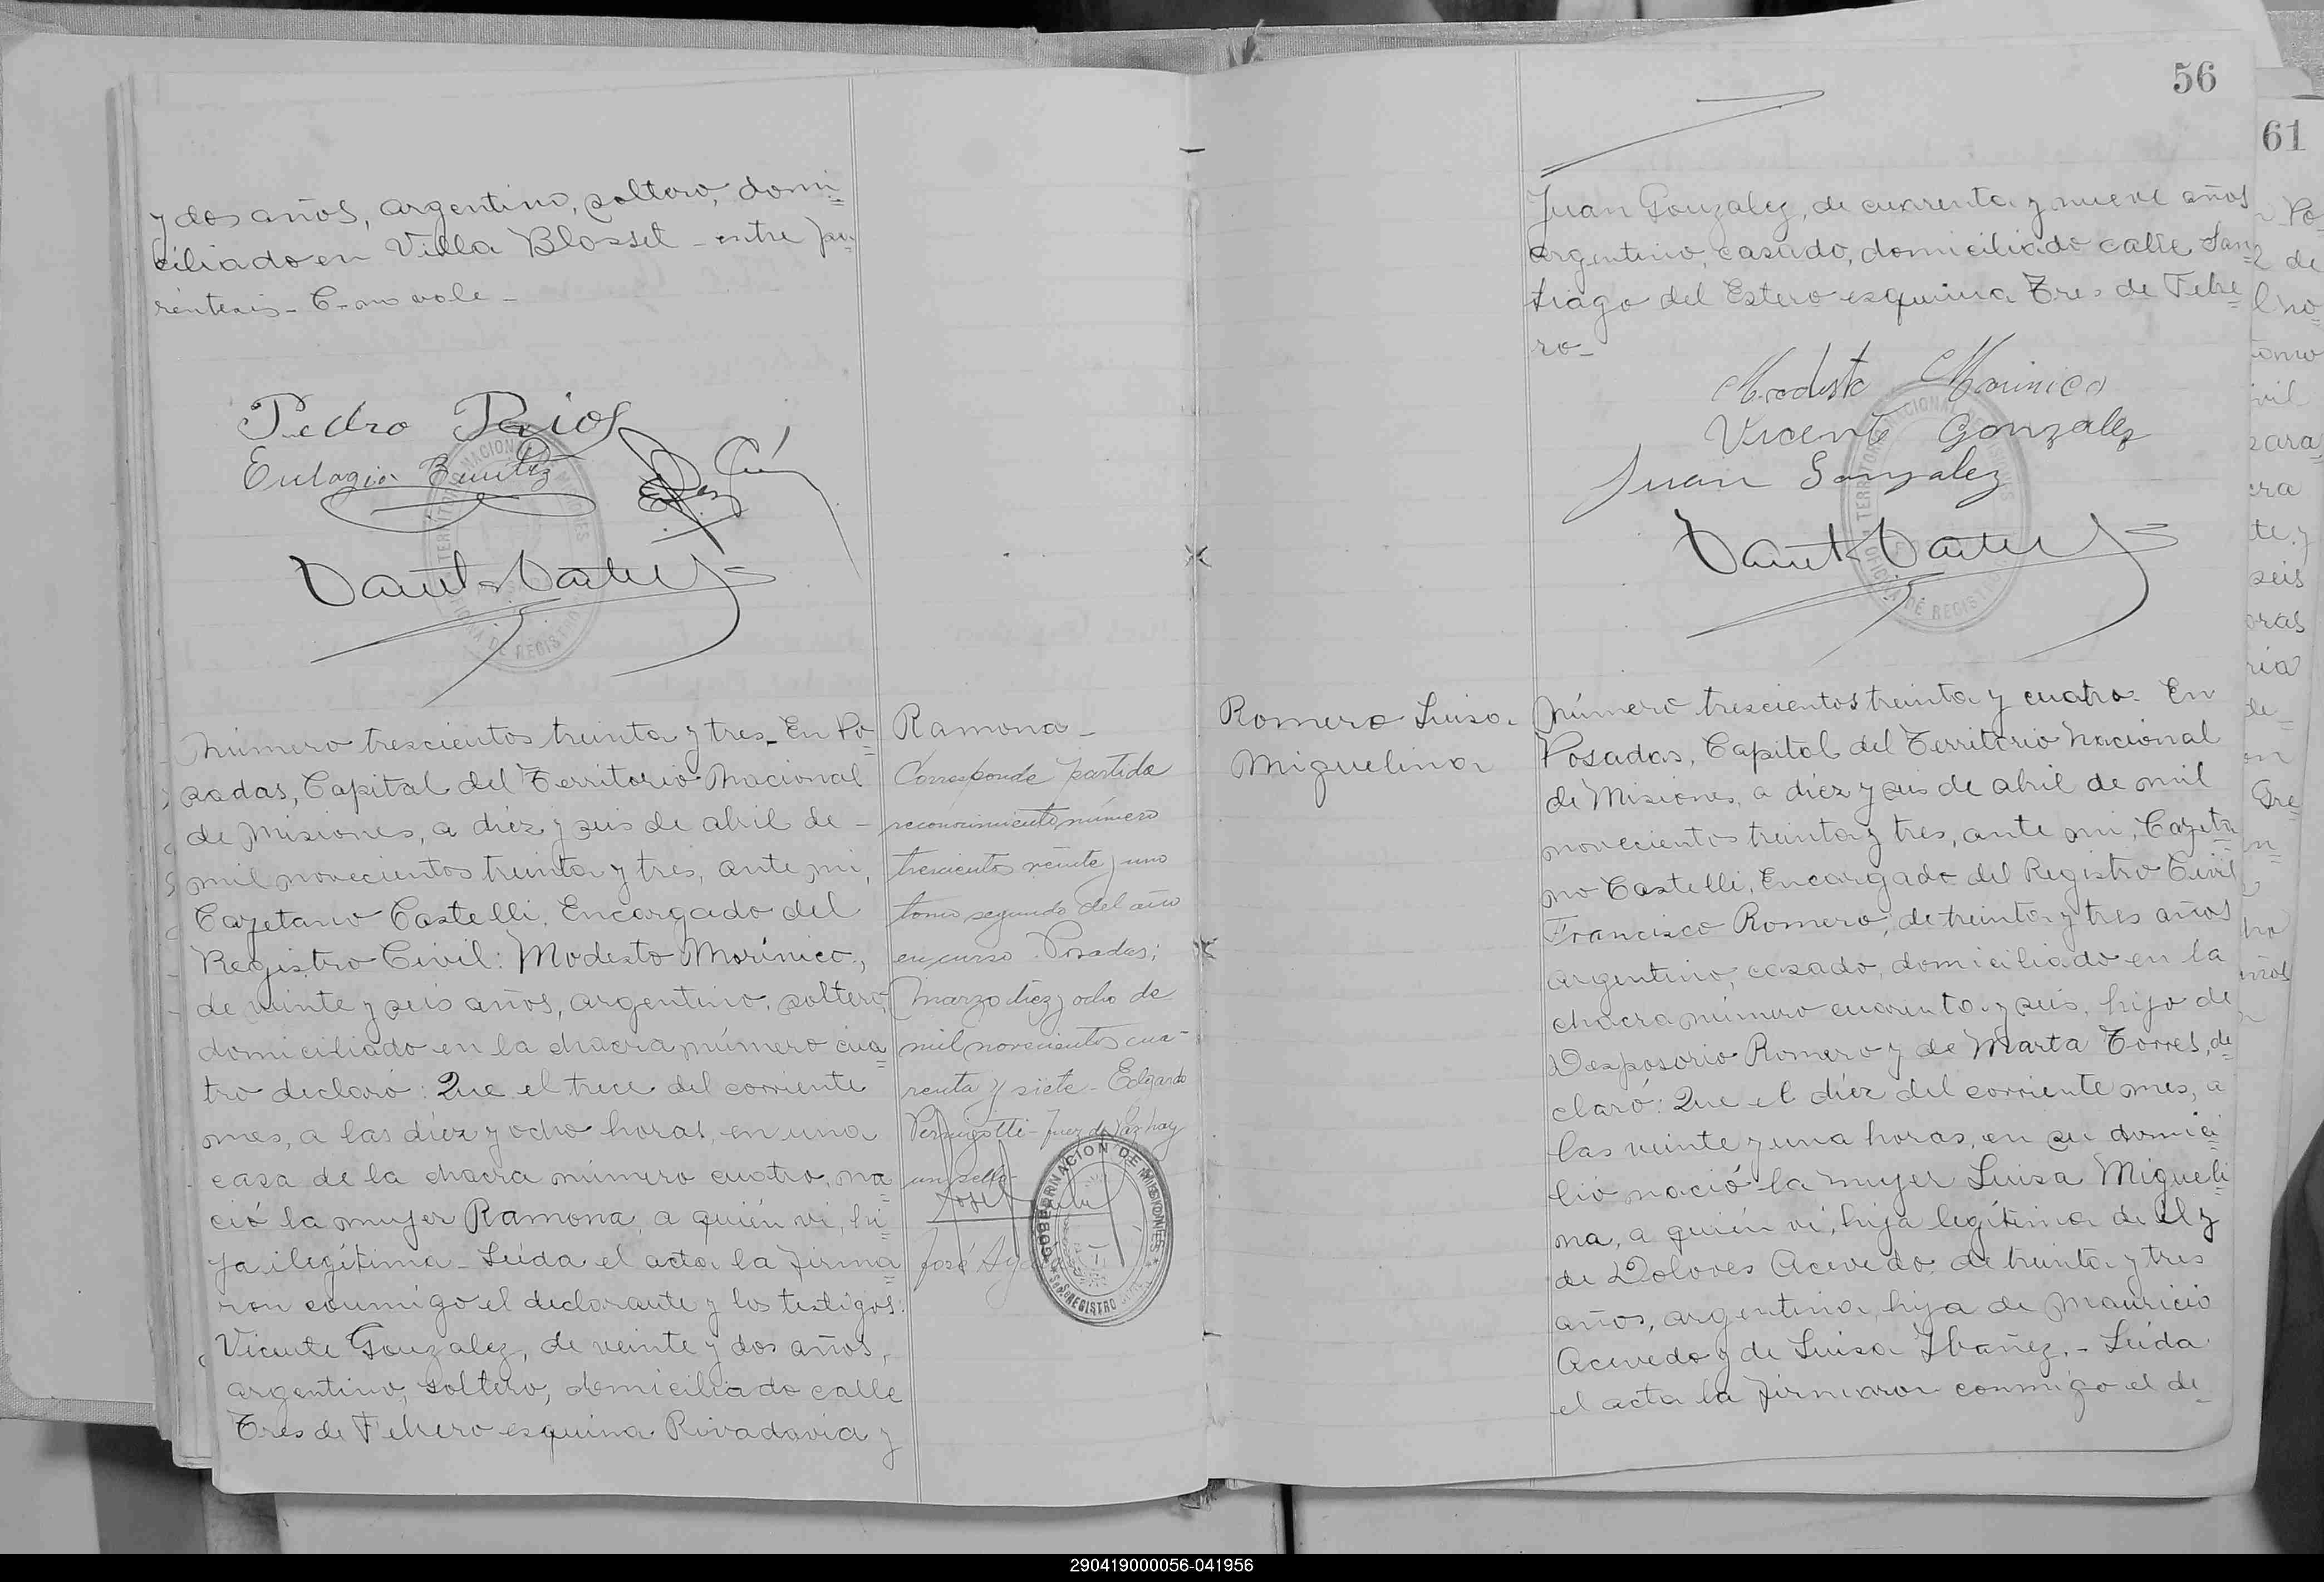 y dos años, argentino, soltero, domi=
ciliado en Villa Blosset - entre pa=
réntesis - C - no vale -
Pedro Rios
Eulogio Benitez
Número trescientos treinta y tres - En Po=
sadas, Capital del Territorio Nacional
de Misiones, a diez y seis de abril de -
mil novecientos treinta y tres, ante mi,
Cayetano Castelli, Encargado del
Registro Civil: Modesto Morínico,
de veinte y seis años, argentino, soltero,
domiciliado en la chacra número cua=
tro declaró: Que el trece del corriente
mes, a las diez y ocho horas, en una
casa de la chacra número cuatro, na=
ció la mujer Ramona, a quién vi, hi=
ja ilegítima - Leída el acta la firma=
ron conmigo el declarante y los testigos:
Vicente Gonzalez, de veinte y dos años,
argentino, soltero, domiciliado calle
Tres de Febrero esquina Rivadavia y
Ramona -
Corresponde partida
reconocimiento número
trescientos veinte y uno
tomo segundo del año
en curso. Posadas,
Marzo diez y ocho de
mil novecientos cua-
renta y siete - Edgardo
Pernigotti - Juez de Paz hay
un sello -
GOBERNACION DE MISIONES
REGISTRO
José
56
Juan Gonzalez, de cuarenta y nueve años
argentino, casado, domiciliado calle San=
tiago del Estero esquina Tres de Febre=
ro -
Modesto Morinico
Vicente Gonzalez
Juan Gonzalez
TERRITORIO NACIONAL DE MISIONES
OFICINA DE REGISTRO
Romero Luisa
Miguelina
Número trescientos treinta y cuatro - En
Posadas, Capital del Territorio Nacional
de Misiones, a diez y seis de abril de mil
novecientos treinta y tres, ante mi, Cayeta=
no Castelli, Encargado del Registro Civil
Francisco Romero, de treinta y tres años
argentino, casado, domiciliado en la
chacra número cuarenta y seis, hijo de
Desposorio Romero y de Marta Torres, de=
claró: Que el diez del corriente mes, a
las veinte y una horas, en su domici=
lio nació la mujer Luisa Migueli=
na, a quién vi, hija legítima de él y
de Dolores Acevedo, de treinta y tres
años, argentina, hija de Mauricio
Acevedo y de Luisa Ibañez. - Leída
el acta la firmaron conmigo el de=
61
290419000056-041956